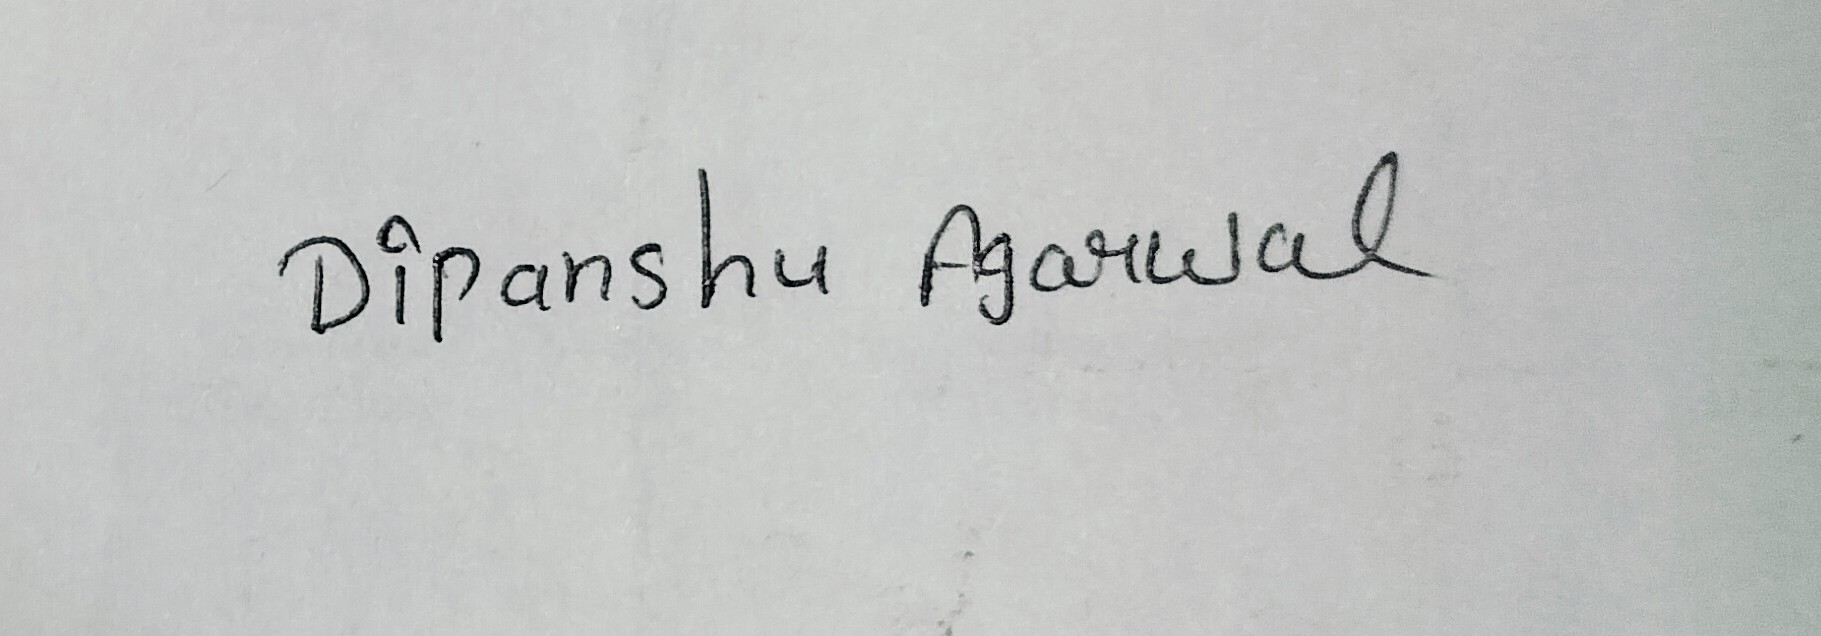 Dipanshu Agarwal